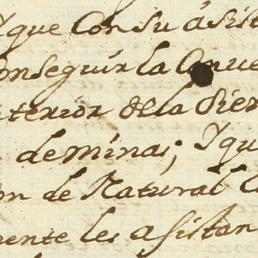 Y que con su asist
conseguir la Conve
terior de la Sier
de minas; Y qu
on de Natural
mente les asistan